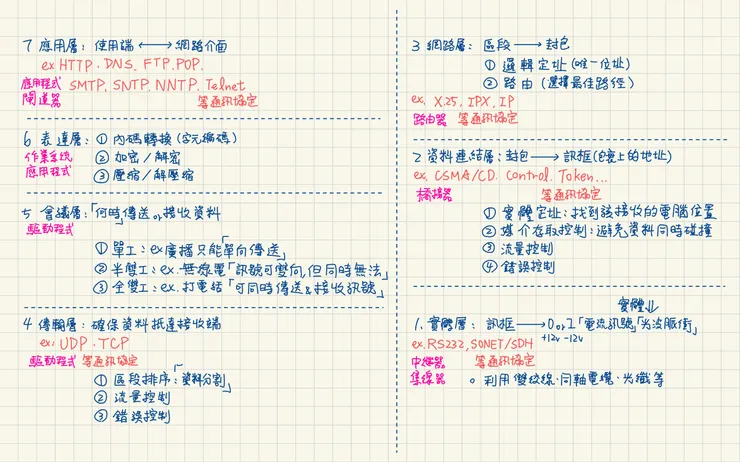 7 應用層：使用端 ⟷ 網路介面
ex HTTP、DNS、FTP、POP、
應用程式 SMTP、SNTP、NNTP、Telnet
閘道器 等通訊協定
6 表達層：① 內碼轉換(字元編碼)
作業系統 ② 加密/解密
應用程式 ③ 壓縮/解壓縮
5 會議層：「何時傳送or接收資料
驅動程式
① 單工：ex廣播只能「單向傳送」
② 半雙工：ex.無線電「訊號可雙向,但同時無法」
③ 全雙工：ex.打電話「可同時傳送&接收訊號」
4 傳輸層：確保資料抵達接收端
ex: UDP、TCP
驅動程式 等通訊協定
① 區段排序：「資料分割」
② 流量控制
③ 錯誤控制
3 網路層：區段 → 封包
① 邏輯定址(唯一位址)
② 路由(選擇最佳路徑)
ex. X.25, IPX, IP
路由器 等通訊協定
2 資料連結層：封包 → 訊框(上的地址)
ex. CSMA/CD. Control. Token...
橋接器 等通訊協定
① 實體定址：找到該接收的電腦位置
② 媒介存取控制：避免資料同時碰撞
③ 流量控制
④ 錯誤控制
實體↓
1. 實體層：訊框 → 0 or 1「電流訊號」「光波脈衝」
ex.RS232, SONET/SDH +12v -12v
中繼器 等通訊協定
集線器 。利用雙絞線、同軸電纜、光纖等